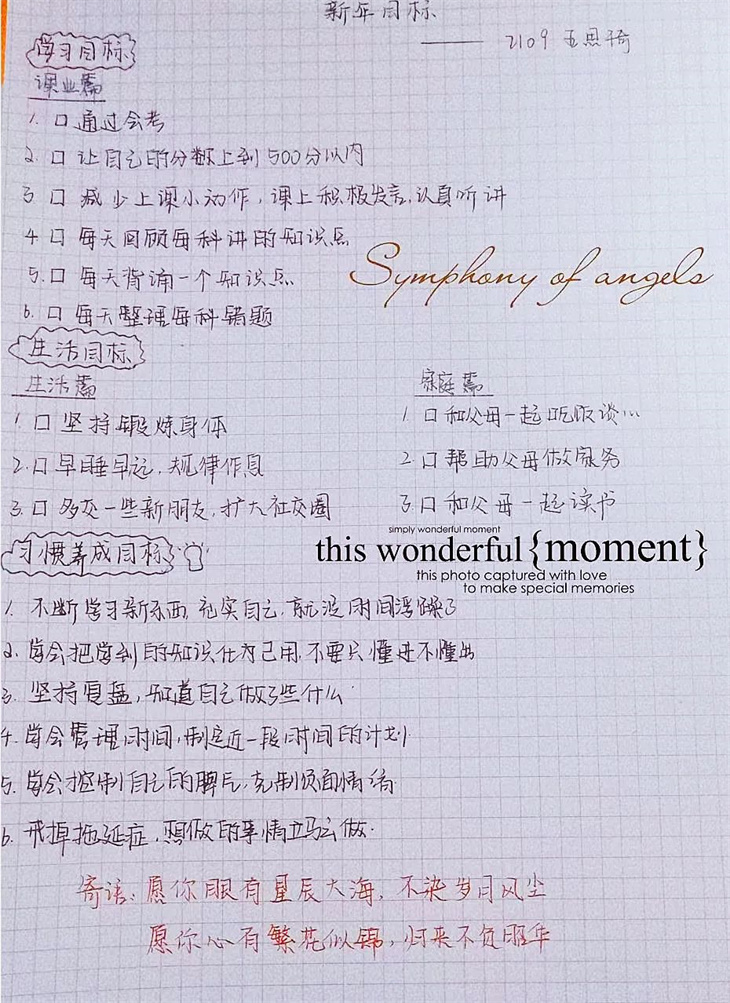 新年目标
—— 2109 王思琦
学习目标
课业篇
1. 口 通过会考
2. 口 让自己的分数上到500分以内
3 口 减少上课小动作，课上积极发言，认真听讲
4 口 每天回顾每科讲的知识点
5. 口 每天背诵一个知识点
6. 口 每天整理每科错题
Symphony of angels
生活目标
生活篇
1 口 坚持锻炼身体
2. 口 早睡早起，规律作息
3. 口 多交一些新朋友，扩大社交圈
家庭篇
1 口 和父母一起吃饭谈心
2. 口 帮助父母做家务
3. 口 和父母一起读书
simply wonderful moment
this wonderful {moment}
this photo captured with love
to make special memories
习惯养成目标
1. 不断学习新东西，充实自己，就没时间浮躁了
2. 学会把学到的知识化为己用，不要只懂进不懂出
3. 坚持复盘，知道自己做了些什么
4. 学会管理时间，制定近一段时间的计划
5. 学会控制自己的脾气，克制负面情绪
6. 戒掉拖延症，想做的事情立马去做.
寄语：愿你眼有星辰大海，不染岁月风尘
愿你心有繁花似锦，归来不负韶华